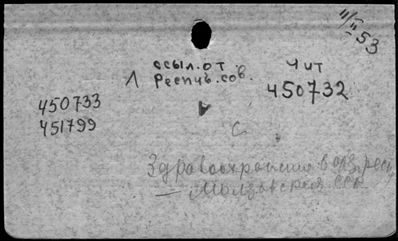 11/II 53
ссыл. от
Респуб. сов.
1
Чит
450732
450733
451799
С
Здравоохранения в
Молдавская ССР